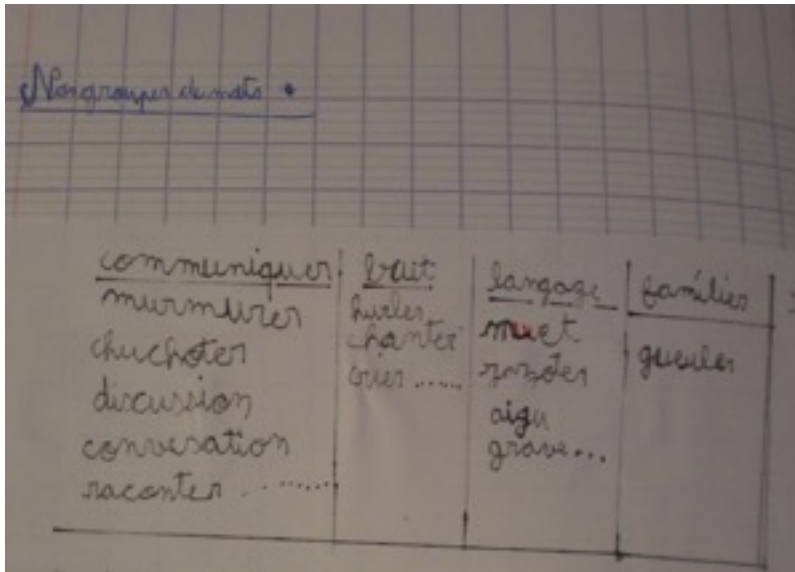 Nos groupes de mots
communiquer bruit langage familier
murmurer hurler muet gueuler
chuchoter chanter zozoter
discussion crier ...... aigu
convesation grave...
raconter ........